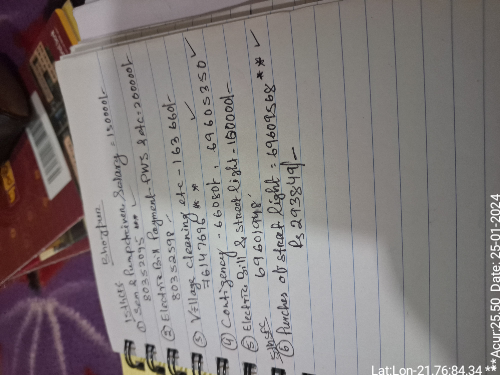 Bhogpur
15th SFC
① Sem & Pumpdriver Salary = 150000/-
80352075 ** ✓
② Electric Bill Payment - PWS & etc = 200000/-
80352598 ✓
③ Village cleaning etc - 163660/-
76147696 * * ✓
④ Contigency - 66080/, 69605350 ✓
⑤ Electric Bill & street light = 100000/-
69601948
5th SFC
⑥ Purches of street light = 69609568 ** ✓
Rs 293849/-
Lat:Lon-21.76:84.34
**Acur:25.50 Date: 25-01-2024